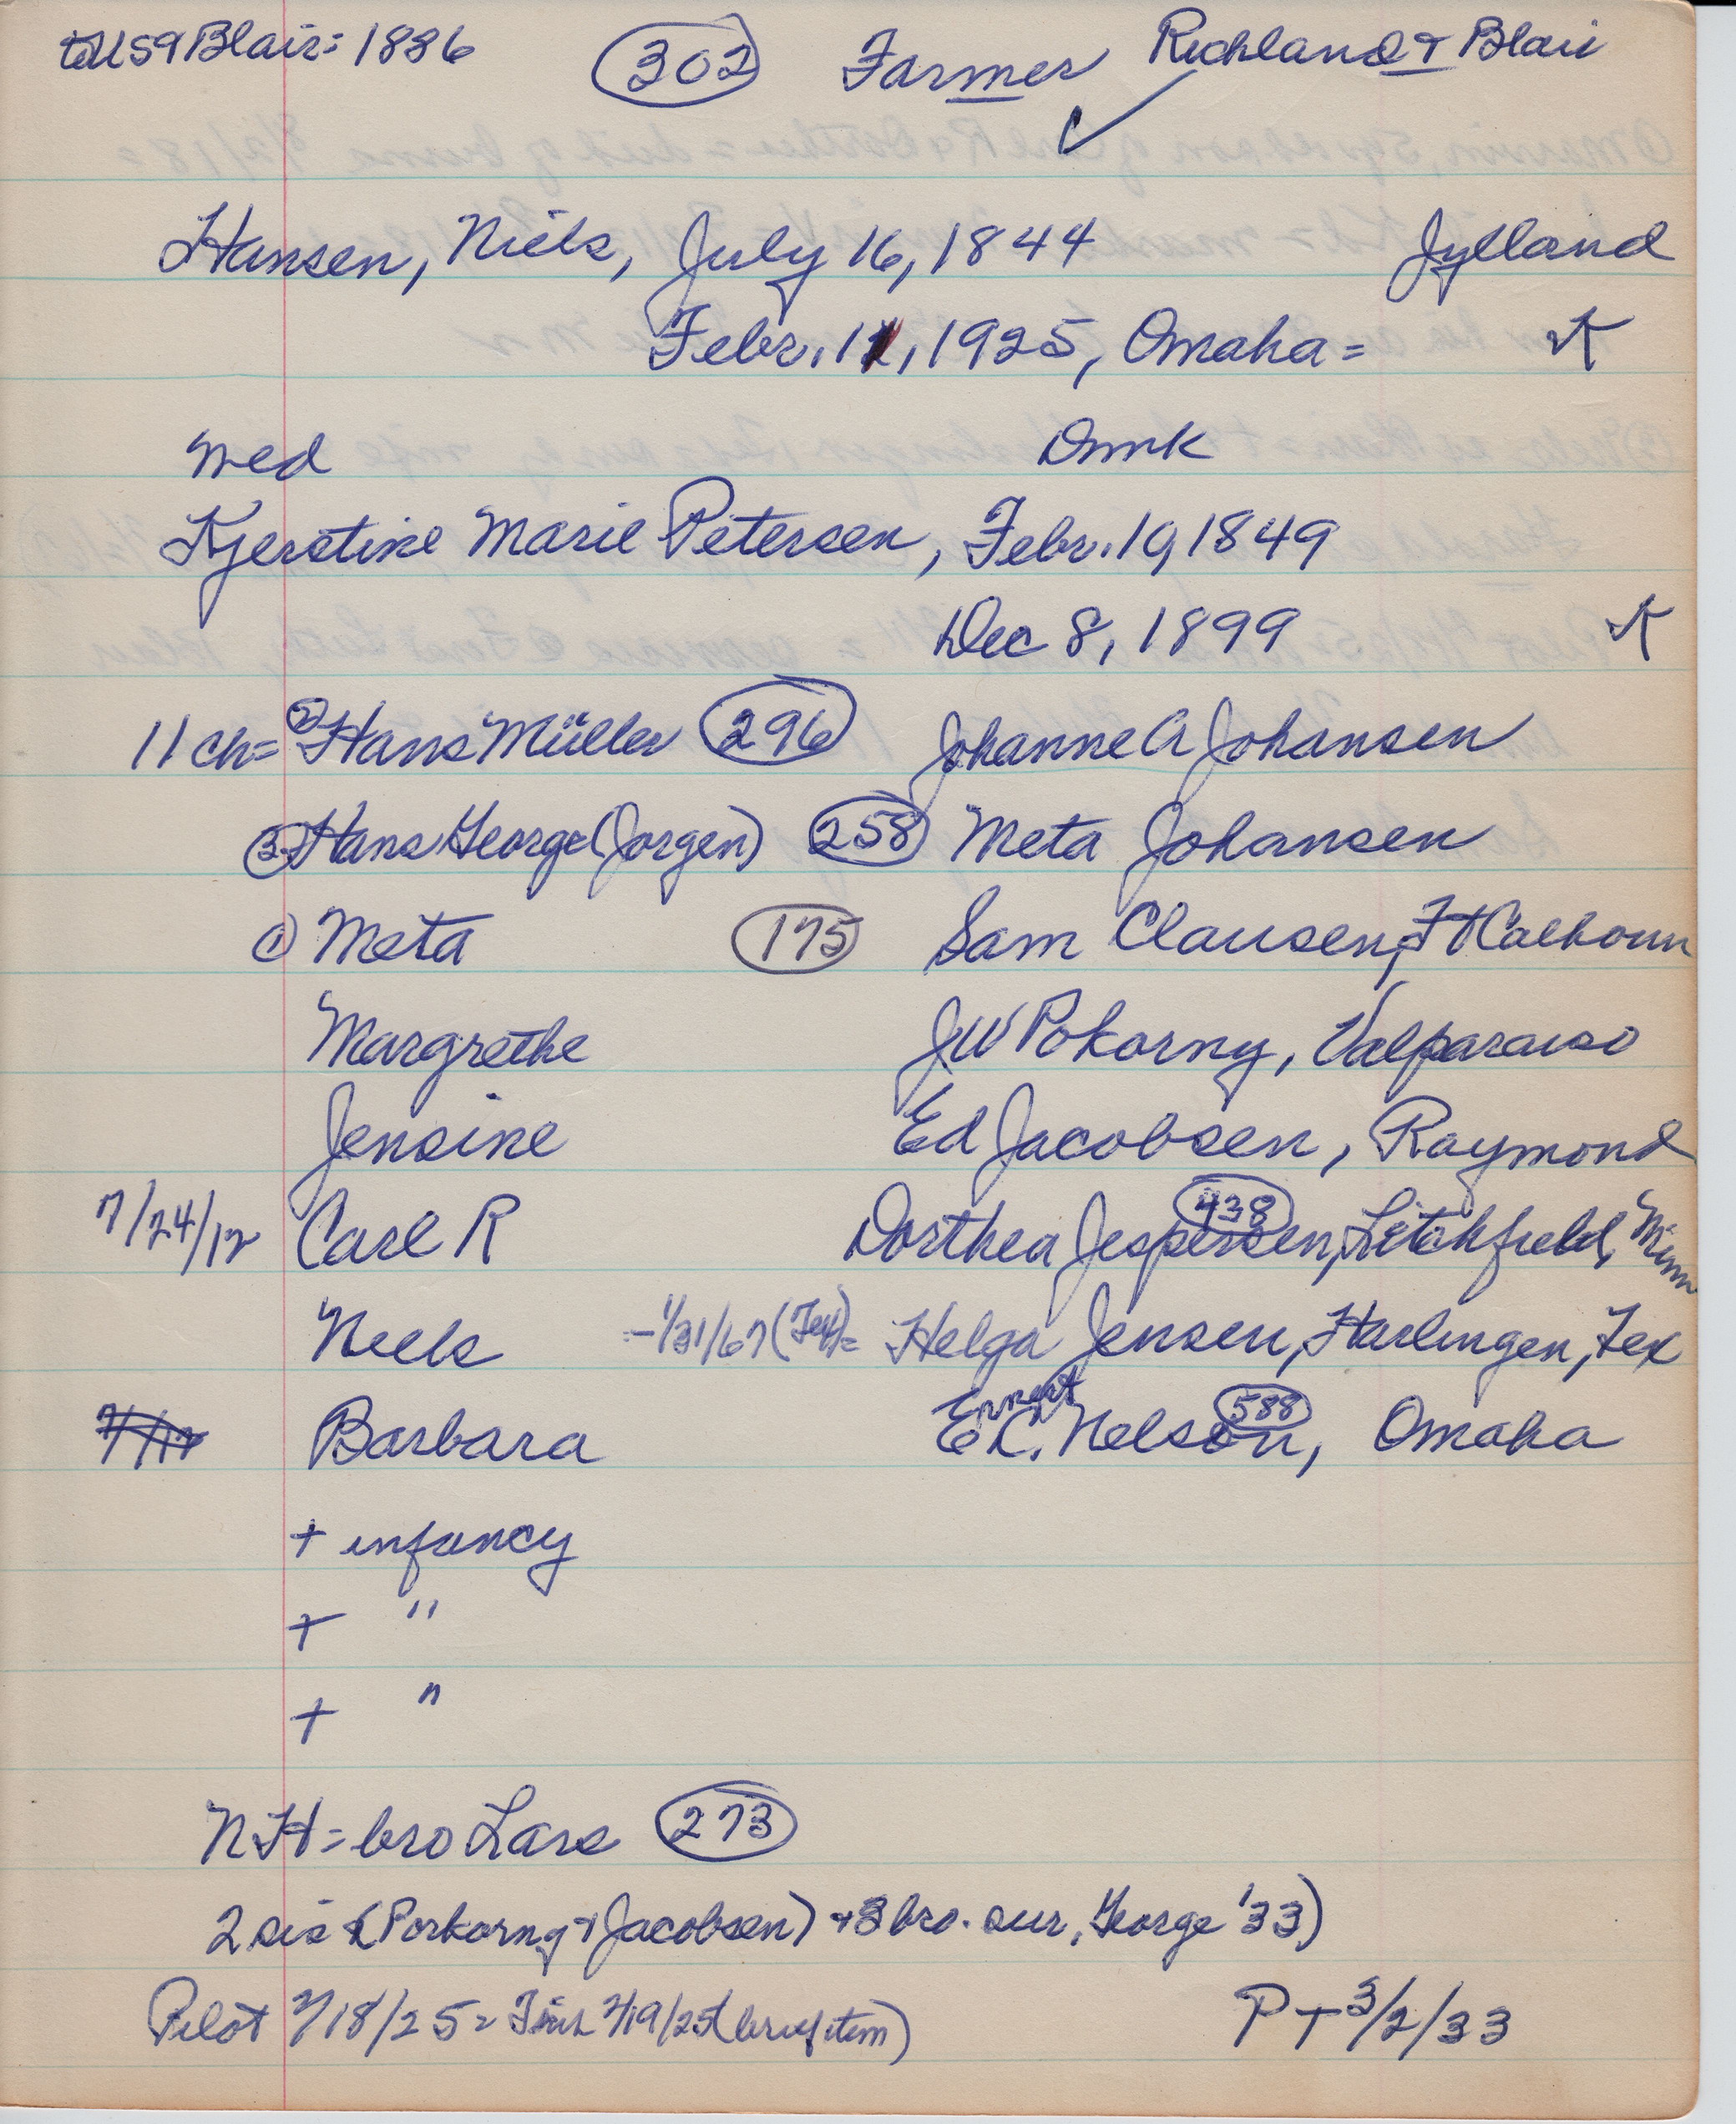 to USA Blair = 1886 302 Farmer Richland & Blair
Hansen, Niels, July 16, 1844 Jylland
Febr. 11, 1925, Omaha =
med Dmk
Kjerstine Marie Petersen, Febr. 19, 1849
Dec 8, 1899
11 ch = 2 Hans Müller 296 Johanne A Johansen
3 Hans George (Jorgen) 258 Meta Johansen
1 Meta 175 Sam Clausen, Ft Calhoun
Margrethe JW Pokorny, Valparaiso
Jensine Ed Jacobsen, Raymond
7/24/12 Carl R Dorthea Jespersen, 438 Litchfield, Minn
Niels - 1/31/67 (Tex) = Helga Jensen, Harlingen, Tex
Barbara Ernest E.C. Nelson, 588 Omaha
+ infancy
+ "
+ "
NH = bro Lars 273
2 sis (Porkorny + Jacobsen) + 3 bro. sur, George '33)
Pilot 2/18/25 = 2/19/25 (brief item) PT 3/2/33